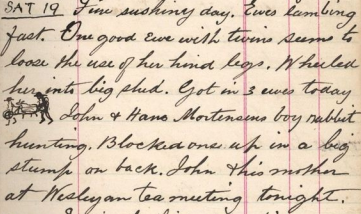 SAT 19 Fine sushiny day. Ewes lambing
fast. One good Ewe with twins seems to
loose the use of her hind legs. Wheeled
her into big shed. Got in 3 ewes today
John & Hans Mortensens boy rabbit
hunting. Blocked one up in a big
stump on back. John & his mother
at Wesleyan tea meeting tonight.